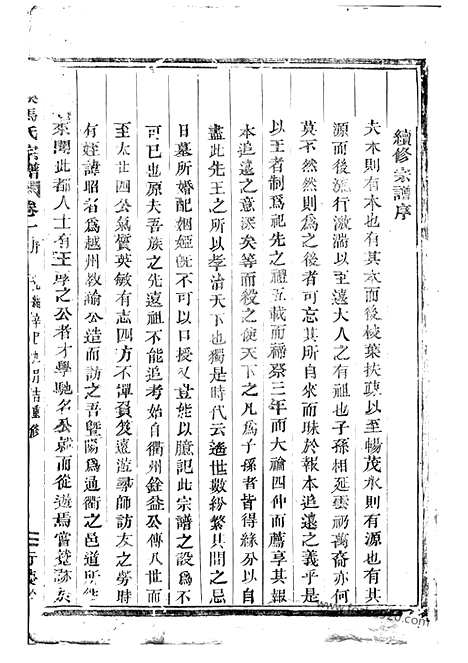 續修宗譜序
夫木則有本也有其本而後枝葉扶疎以至暢茂水則有源也有其
源而後流行激湍以至遠大人之有祖也子孫相延雲礽萬裔亦何
莫不然然則爲之後者可忘其所自來而昧於報本追遠之義乎是
以王者制爲祀先之禮五載而禘祭三年而大祫四仲而薦享其報
本追遠之意深矣等而殺之使天下之凡爲子孫者皆得緣分以自
盡此先王之所以孝治天下也獨是時代云遙世數紛繁其間之忌
日墓所婚配姻婭旣不可以口授又豈能以臆記此宗譜之設爲不
可已也原夫吾族之先遠祖不能追考始自衢州銓益公傳八世而
至大世四公氣質英敏有志四方不憚負笈遠遊尋師訪友之勞時
有姪諱昭者爲越州教諭公造而訪之吾暨陽爲通衢之邑道所
來聞此都人士有王厚之公者才學馳名公就而從遊焉嘗
馬氏宗譜 卷一 序
光緒辛巳九月吉重修